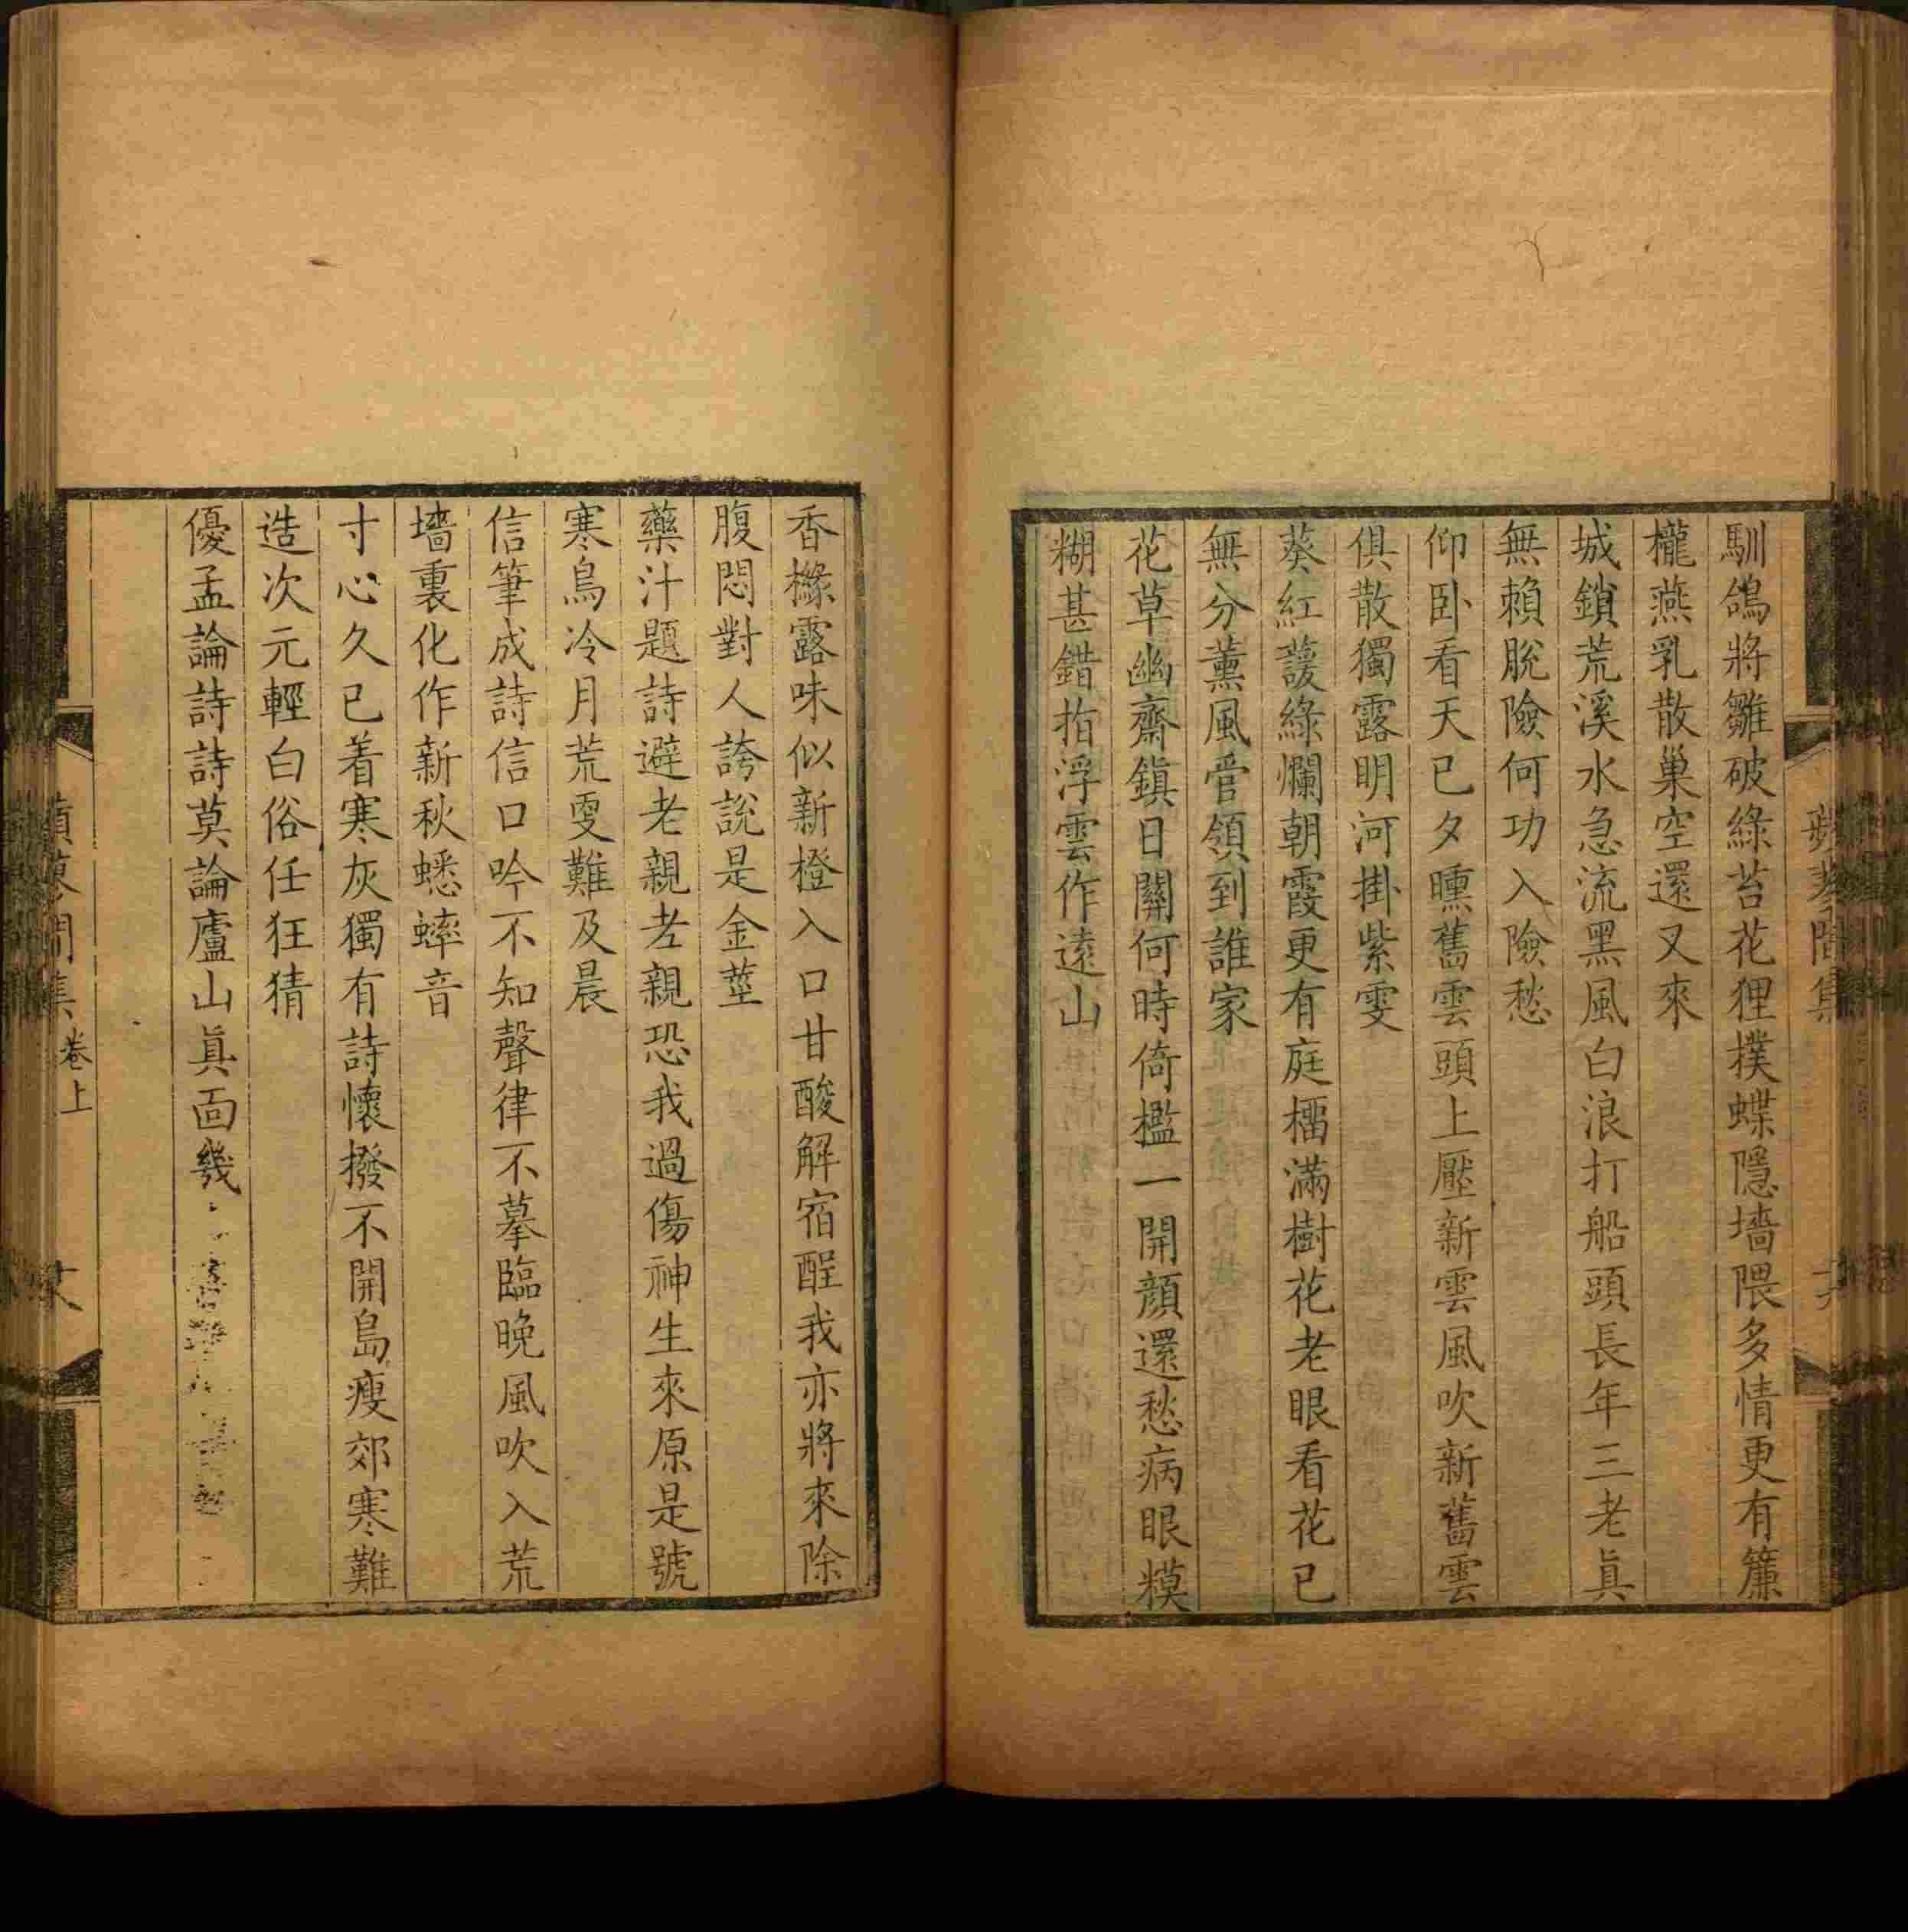 馴鴿將雛破綠苔花狸撲蝶隱墻隈多情更有簾
櫳燕乳散巢空還又來
城鎖荒溪水急流黑風白浪打船頭長年三老眞
無賴脫險何功入險愁
仰卧看天已夕曛舊雲頭上壓新雲風吹新舊雲
俱散獨露明河掛紫雯
葵紅䕶綠爛朝霞更有庭櫺滿樹花老眼看花已
無分薰風管領到誰家
花草幽齋鎮日關何時倚檻一開顏還愁病眼糢
糊甚錯指浮雲作遠山
香櫞露味似新橙入口甘酸解宿酲我亦將來除
腹悶對人誇說是金莖
藥汁題詩避老親老親恐我過傷神生來原是號
寒鳥冷月荒雯難及晨
信筆成詩信口吟不知聲律不摹臨晚風吹入荒
墻裏化作新秋蟋蟀音
寸心久已着寒灰獨有詩懷撥不開島瘦郊寒難
造次元輕白俗任狂猜
優孟論詩詩莫論廬山眞面幾
卷上